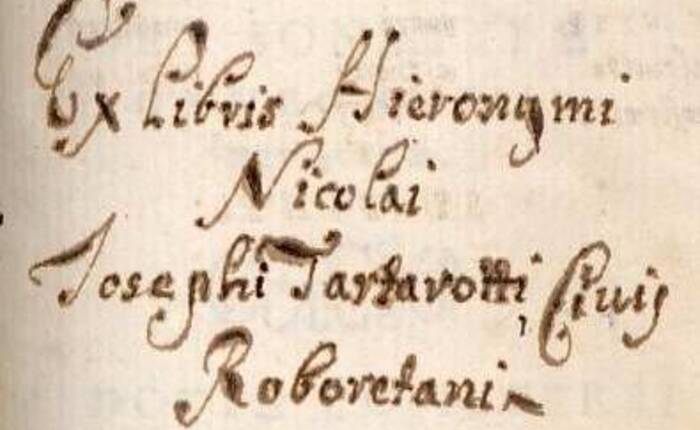 Ex Libris Hieronymi
Nicolai
Josephi Tartarotti, Ciuis
Roboretani